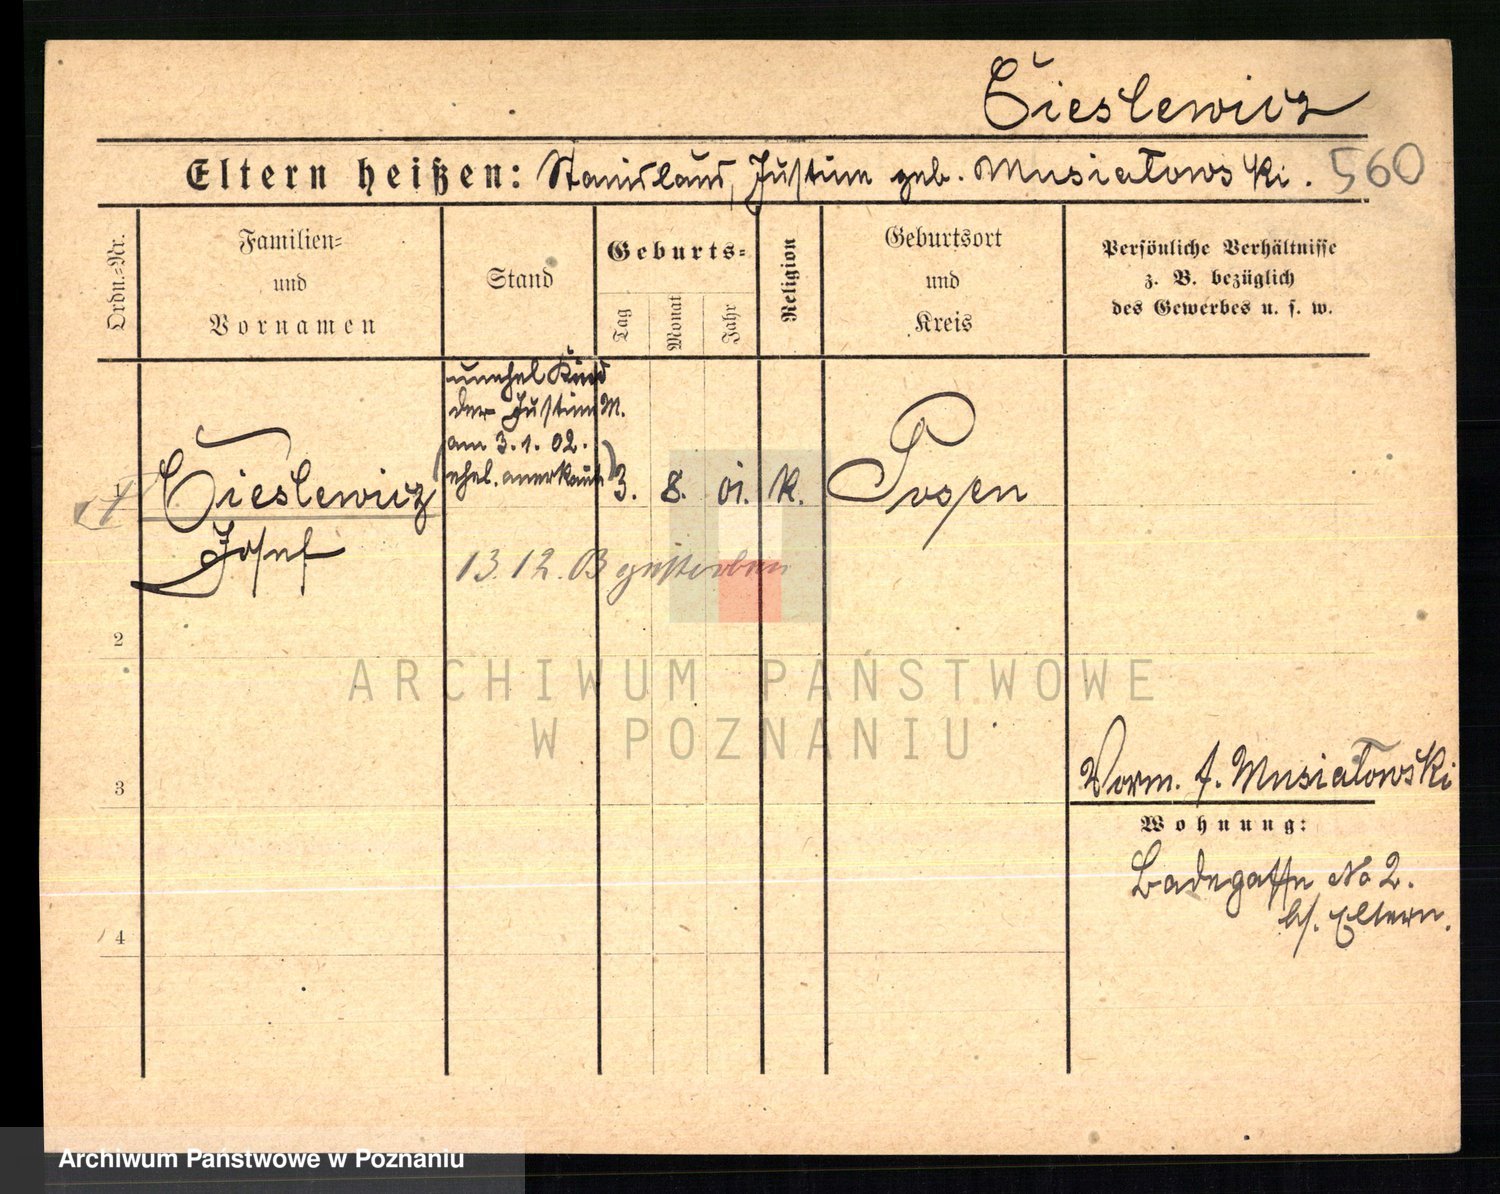 Cieslewicz
Eltern heißen: Stanislaus, Justine geb. Musiatowski. 560
Ordn.=Nr.
Familien=
und
Vornamen
Stand
Geburts=
Tag
Monat
Jahr
Religion
Geburtsort
und
Kreis
Persönliche Verhältnisse
z. B. bezüglich
des Gewerbes u. s. w.
unehel Kind
der Justine M.
am 3.1.02.
ehel. anerkannt
Cieslewicz
Josef
3. 8. 01. K. Posen
13.12. gestorben
2
3
4
Vorm. f. Musiatowski
Wohnung:
Badegasse No 2.
b/. Eltern.
ARCHIWUM PAŃSTWOWE
W POZNANIU
Archiwum Państwowe w Poznaniu